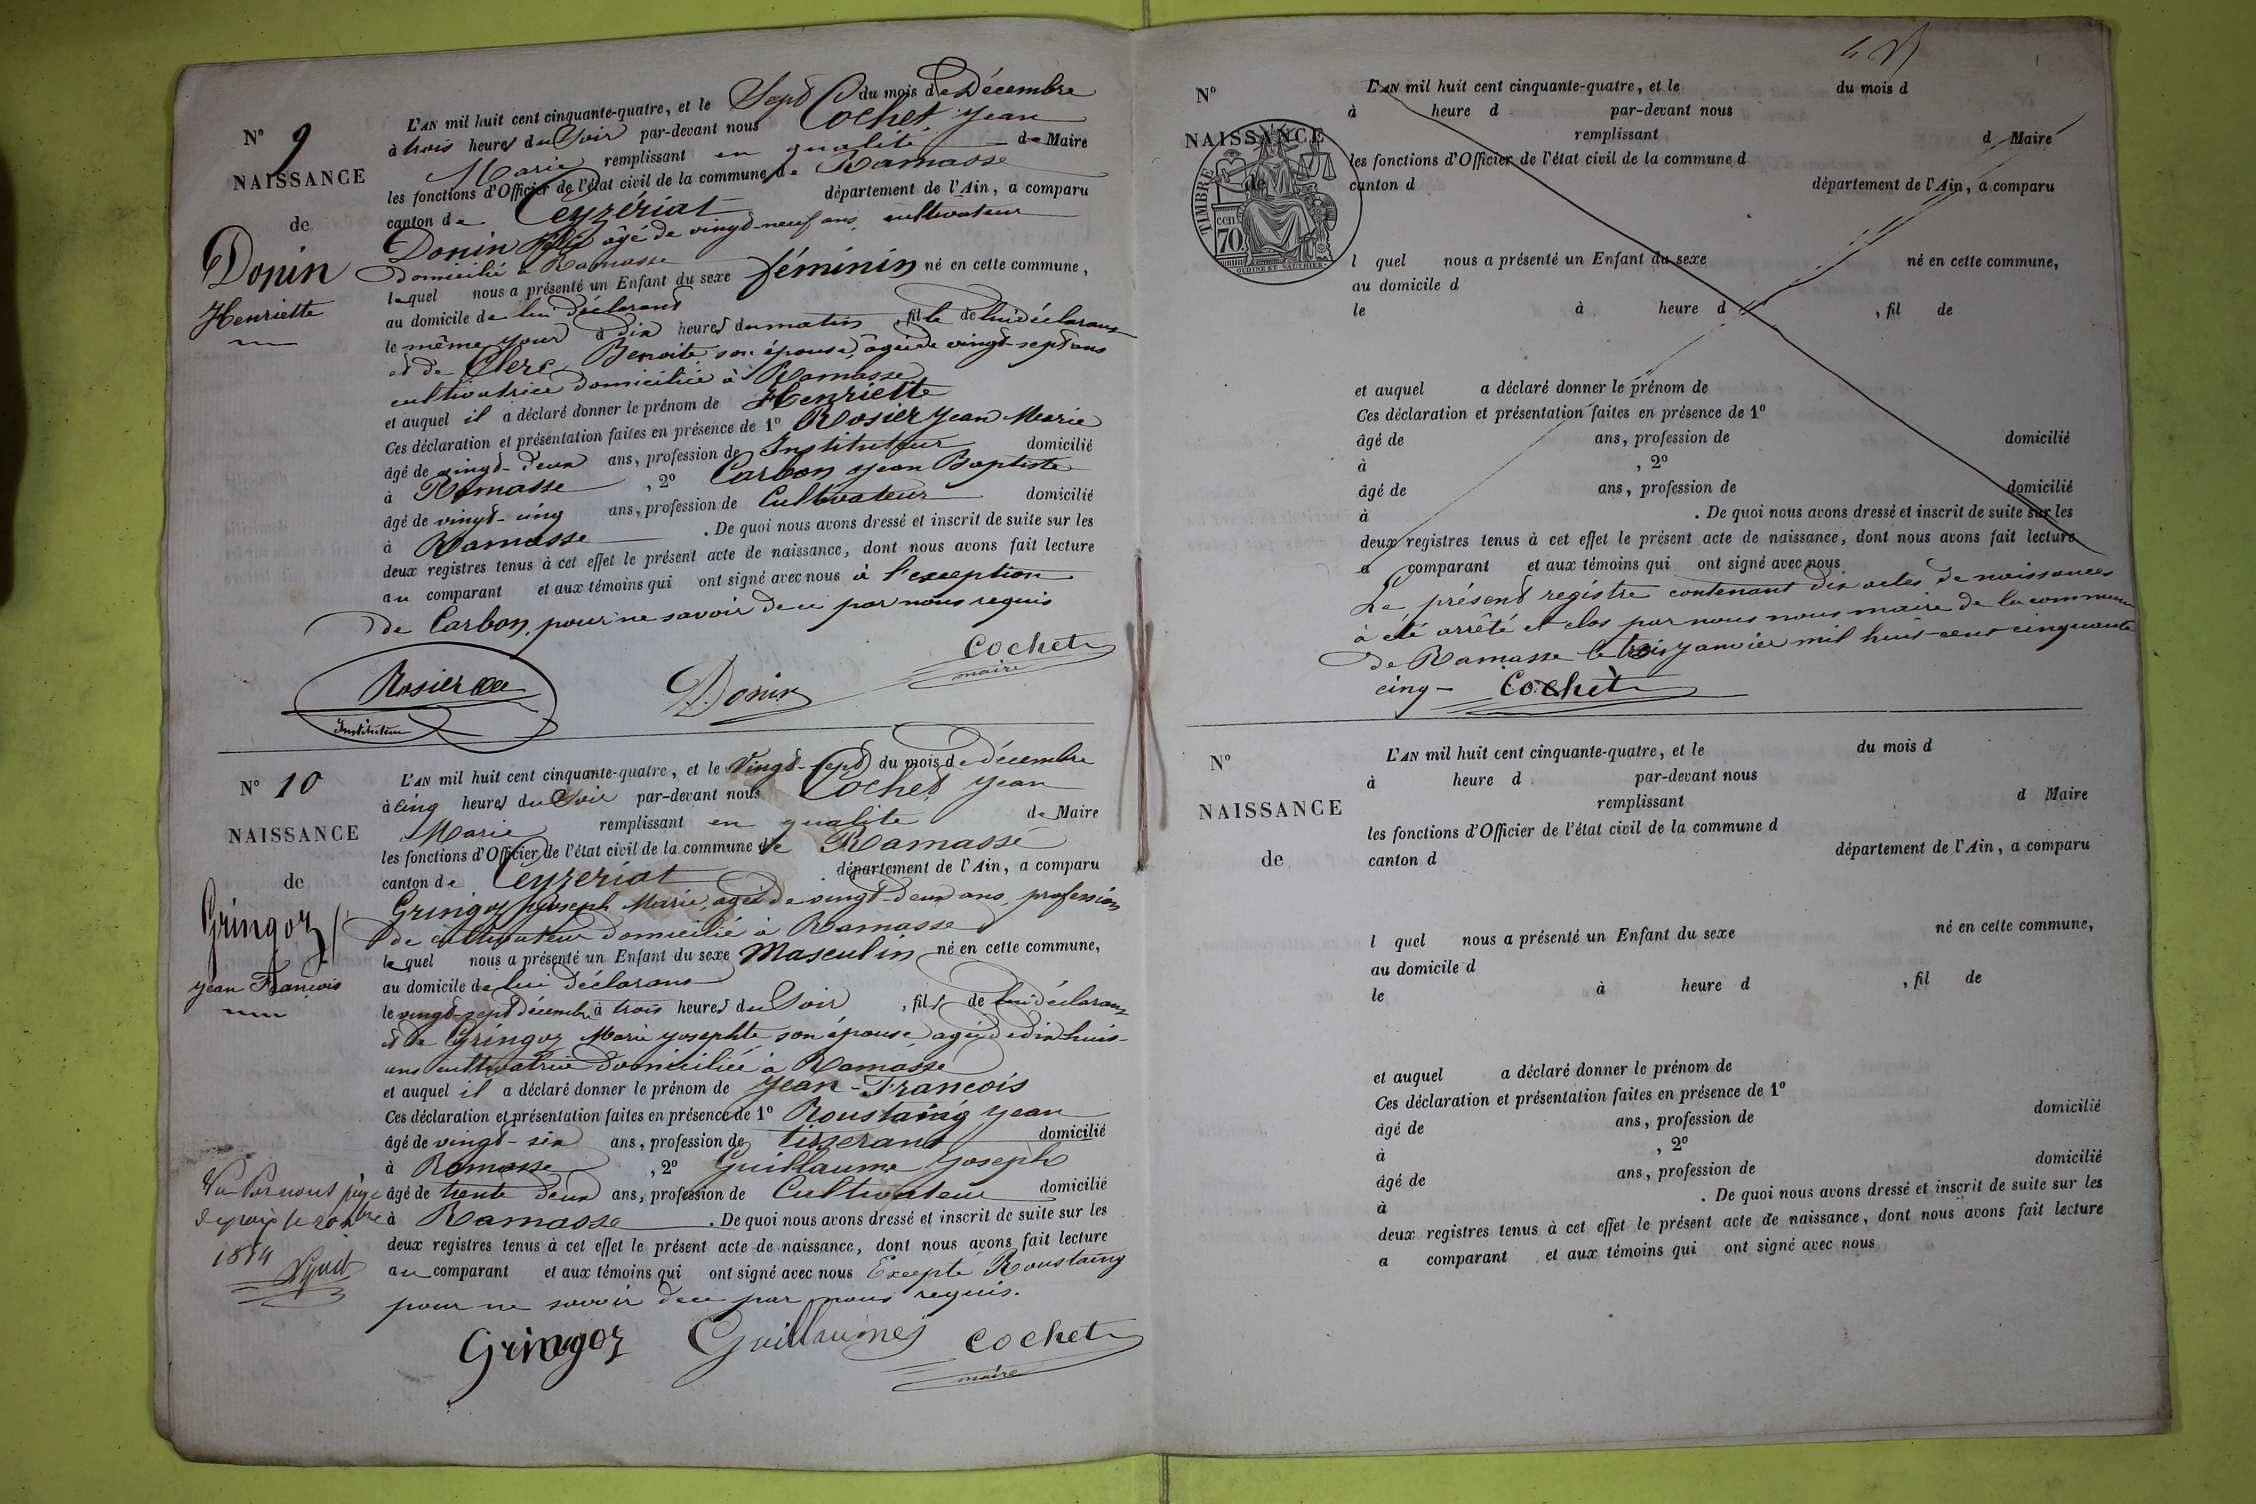 N° 9
NAISSANCE
de
Donin
Henriette
L'AN mil huit cent cinquante-quatre, et le Sept du mois de Décembre
à trois heures du Soir par-devant nous Cochet Jean
Marie remplissant en qualité de Maire
les fonctions d'Officier de l'état civil de la commune de Ramasse
canton de Ceyzériat département de l'Ain, a comparu
Donin Félix âgé de vingt-neuf ans, cultivateur
Domicilié à Ramasse
lequel nous a présenté un Enfant du sexe féminin né en cette commune,
au domicile de lui déclarant
le même jour à dix heures du matin, fille de lui déclarant
et de Clerc Benoite son épouse, agée de vingt-sept ans
cultivatrice domiciliée à Ramasse
et auquel il a déclaré donner le prénom de Henriette
Ces déclaration et présentation faites en présence de 1° Rosier Jean Marie
âgé de vingt-deux ans, profession de Instituteur domicilié
à Ramasse, 2° Carbon Jean Baptiste
âgé de vingt-cinq ans, profession de Cultivateur domicilié
à Ramasse. De quoi nous avons dressé et inscrit de suite sur les
deux registres tenus à cet effet le présent acte de naissance, dont nous avons fait lecture
au comparant et aux témoins qui ont signé avec nous à l'exception
de Carbon, pour ne savoir de ce par nous requis
Rosier
Instituteur
Donin
Cochet
maire
N° 10
NAISSANCE
de
Gringoz
Jean François
L'AN mil huit cent cinquante-quatre, et le Vingt-sept du mois de décembre
à cinq heures du Soir par-devant nous Cochet Jean
Marie remplissant en qualité de Maire
les fonctions d'Officier de l'état civil de la commune de Ramasse
canton de Ceyzériat département de l'Ain, a comparu
Gringoz Joseph Marie, agé de vingt-deux ans, profession
de cultivateur domicilié à Ramasse
lequel nous a présenté un Enfant du sexe Masculin né en cette commune,
au domicile de lui déclarant
le vingt-sept décembre à trois heures du Soir, fils de lui déclarant
et de Gringoz Marie Josephte son épouse agée de dix-huit
ans cultivatrice domiciliée à Ramasse
et auquel il a déclaré donner le prénom de Jean-Francois
Ces déclaration et présentation faites en présence de 1° Roustaing Jean
âgé de vingt-six ans, profession de tisserand domicilié
à Ramasse, 2° Guillaume Joseph
âgé de trente deux ans, profession de Cultivateur domicilié
à Ramasse. De quoi nous avons dressé et inscrit de suite sur les
deux registres tenus à cet effet le présent acte de naissance, dont nous avons fait lecture
au comparant et aux témoins qui ont signé avec nous Excepte Roustaing
pour ne savoir de ce par nous requis.
Vu Par nous juge
de paix le 20
1854
Gringoz
Guillaume
Cochet
maire
N°
NAISSANCE
de
TIMBRE
cen
70.
OUDINE ET VAUTHIER
L'AN mil huit cent cinquante-quatre, et le du mois d
à heure d par-devant nous
remplissant d Maire
les fonctions d'Officier de l'état civil de la commune d
canton d département de l'Ain, a comparu
l quel nous a présenté un Enfant du sexe né en cette commune,
au domicile d
le à heure d, fil de
et auquel a déclaré donner le prénom de
Ces déclaration et présentation faites en présence de 1°
âgé de ans, profession de domicilié
à, 2°
âgé de ans, profession de domicilié
à. De quoi nous avons dressé et inscrit de suite sur les
deux registres tenus à cet effet le présent acte de naissance, dont nous avons fait lecture
a comparant et aux témoins qui ont signé avec nous
Le présent régistre contenant dix actes de naissances
à été arrêté et clos par nous maire de la commune
de Ramasse le trois Janvier mil huit-cent cinquante
cinq - Cochet
N°
NAISSANCE
de
L'AN mil huit cent cinquante-quatre, et le du mois d
à heure d par-devant nous
remplissant d Maire
les fonctions d'Officier de l'état civil de la commune d
canton d département de l'Ain, a comparu
l quel nous a présenté un Enfant du sexe né en cette commune,
au domicile d
le à heure d, fil de
et auquel a déclaré donner le prénom de
Ces déclaration et présentation faites en présence de 1°
âgé de ans, profession de domicilié
à, 2°
âgé de ans, profession de domicilié
à. De quoi nous avons dressé et inscrit de suite sur les
deux registres tenus à cet effet le présent acte de naissance, dont nous avons fait lecture
a comparant et aux témoins qui ont signé avec nous